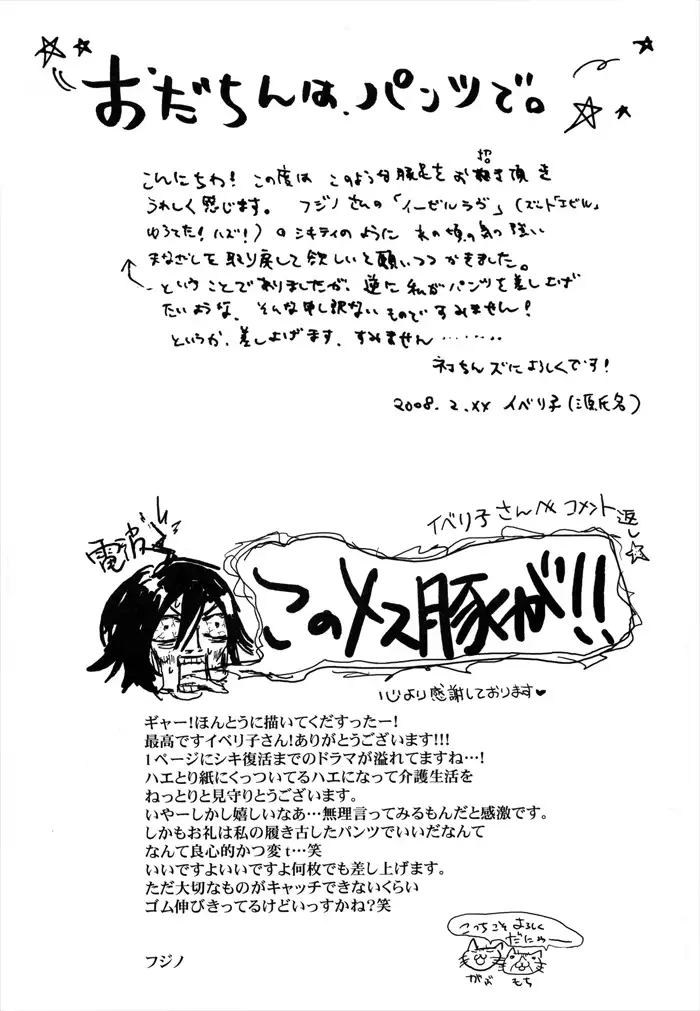 おだちんは、パンツで。
こんにちわ! この度は このような豚足をお招き頂き
うれしく感じます。 フジノさんの「イーゼルラヴ」
シキティのように あの頃の気の強い
まなざしを取り戻して欲しいと願いつつかきました。
ということでありましたが、逆に私がパンツを差し上げ
たいような、そんな申し訳ないものですみません!
というか、差し上げます、すみません………
ネコちんズによろしくです!
2008.2.xx イベリ子(源氏名)
イベリ子さんへ コメント返し
電波
このメス豚が!!
心より感謝しております♥
ギャー!ほんとうに描いてくだすったー!
最高ですイベリ子さん!ありがとうございます!!!
1ページにシキ復活までのドラマが溢れてますね…!
ハエとり紙にくっついてるハエになって介護生活を
ねっとりと見守りとうございます。
いやーしかし嬉しいなあ…無理言ってみるもんだと感激です。
しかもお礼は私の履き古したパンツでいいだなんて
なんて良心的かつ変t…笑
いいですよいいですよ何枚でも差し上げます。
ただ大切なものがキャッチできないくらい
ゴム伸びきってるけどいっすかね?笑
フジノ
こっちこそよろしく
だにゃー
がぶ もち